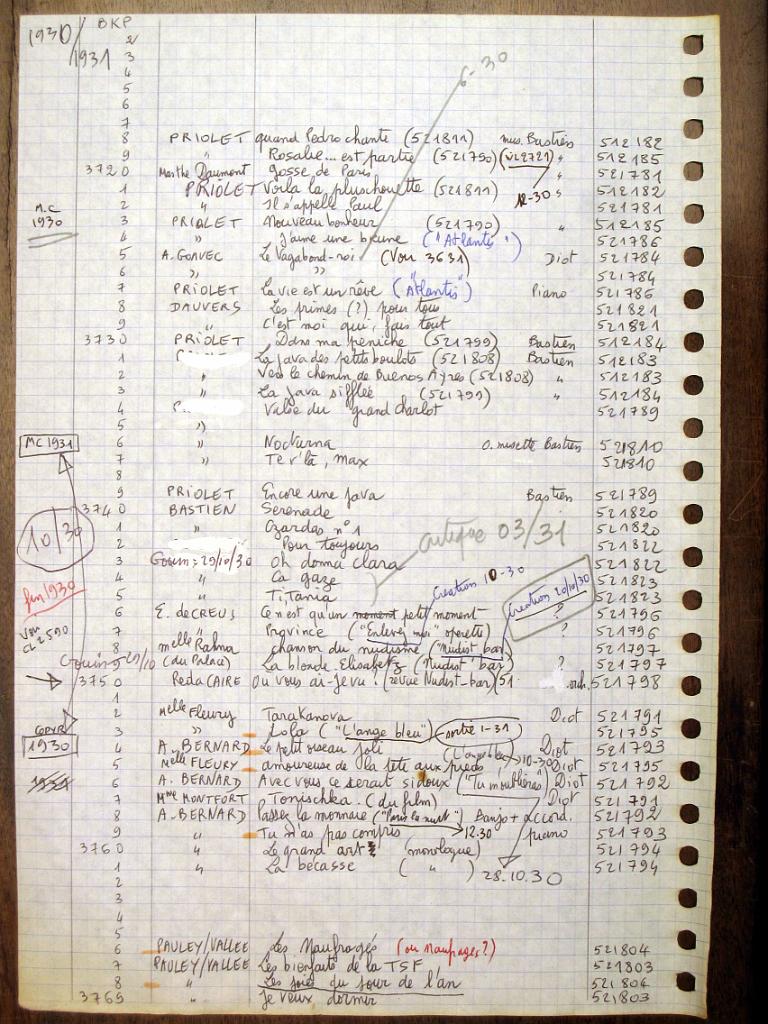 1930/1931 BKP
2
3
4
5
6
6-30
7
8 PRIOLET quand Pedro chante (521811) mus. Bastien 512182
9 " Rosalie... est partie (521790) " 512185
3720 Marthe Daumont gosse de Paris 521781
1 PRIOLET Voila la pluschouette (521811) " 512182
2 " Il s'appelle Paul 12-30 521781
M.C 1930
3 PRIOLET Nouveau bonheur (521790) " 512185
4 " J'aime une brune ("Atlantis") 521786
5 A. GOAVEC Le Vagabond-roi (Voir 3631) Diot 521784
6 " " 521784
7 PRIOLET La vie est un rêve ("Atlantis") Piano 521786
8 DAUVERS Les primes (?) pour tous 521821
9 " C'est moi qui fais tout 521821
3730 PRIOLET Dans ma peniche (521799) Bastien 512184
1 La java des petits boulots (521808) Bastien 512183
2 " Vers le chemin de Buenos Ayres (521808) " 512183
3 " La java sifflée (521799) " 512184
4 P. Valse du grand charlot 521789
5 "
MC 1931
6 " Nocturna O. musette Bastien 521810
7 " Te v'là, max 521810
8
9 PRIOLET Encore une java Bastien 521789
3740 BASTIEN Serenade 521820
1 " Czardas n°1 521820
10/30
critique 03/31
2 Pour toujours 521822
3 Gouin = 29/10/30 Oh donna clara 521822
4 " Ca gaze 521823
5 " Titania 521823
fin 1930
création 10-30
création 20/10/30
6 E. de CREUS Ce n'est qu'un moment petit moment ? 521796
Voir CL 2590
7 " Province ("Enlevez moi" operette) ? 521796
8 melle Rahna chanson du nudisme ("Nudist bar) 521797
Gouin 29/10
9 (du Palace) La blonde Elisabeth (Nudist bar) ? 521797
3750 Reda CAIRE Ou vous ai-je vu? (revue Nudist-bar) (51 orch. 521798
1
2 Melle Fleury Tarakanova Diot 521791
COPYR 1930
3 " Lola ("L'ange bleu") sortie 1-31 521795
4 A. BERNARD Le petit oiseau joli Diot 521793
5 Melle FLEURY amoureuse de la tête aux pieds (L'ange bleu) 10-30 Diot 521795
1931
6 A. BERNARD Avec vous ce serait si doux ("Tu m'oublieras") Diot 521792
7 Mme MONTFORT Tonischka (du film) Diot 521791
8 A. BERNARD Passez la monnaie ("Paris la nuit") Banjo + accord. 521792
9 " Tu m'as pas compris 12.30 piano 521793
3760 " Le grand art (monologue) 521794
1 " La becasse ( " ) 521794
28.10.30
2
3
4
5
6 PAULEY/VALLEE Les Naufragés (ou naufrages?) 521804
7 PAULEY/VALLEE Les bienfaits de la TSF 521803
8 " Les joies du jour de l'an 521804
3769 Je veux dormir 521803